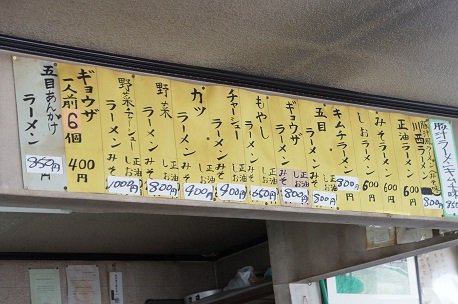 豚汁ラーメンキムチ味
850
豚汁ラーメン
川西ラーメン
800円
正油ラーメン
600円
みそラーメン
600円
しおラーメン
600円
キムチラーメン
800円
五目ラーメン
正油
しお
みそ
800円
ギョウザラーメン
正油
しお
みそ
800円
もやしラーメン
正油
しお
みそ
650円
チャーシューラーメン
正油
しお
みそ
900円
カツラーメン
正油
しお
みそ
900円
野菜ラーメン
正油
しお
みそ
800円
野菜チャーシューラーメン
正油
しお
みそ
1000円
ギョウザ
一人前6個
400円
五目あんかけ
ラーメン
850円